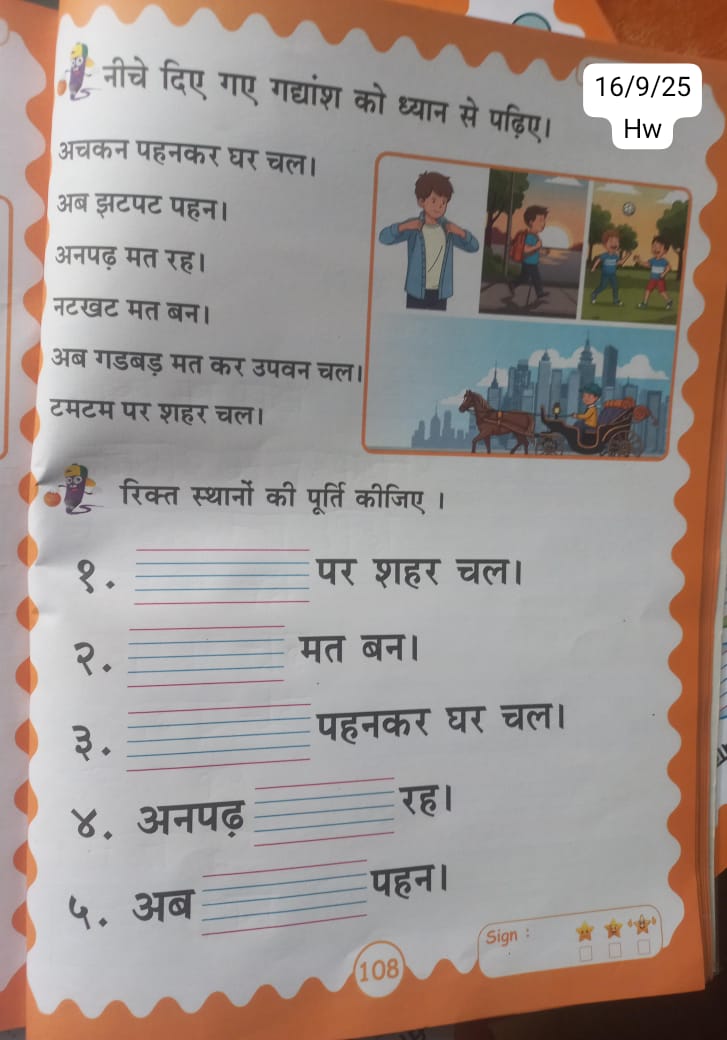 नीचे दिए गए गद्यांश को ध्यान से पढ़िए।
16/9/25
Hw
अचकन पहनकर घर चल।
अब झटपट पहन।
अनपढ़ मत रह।
नटखट मत बन।
अब गडबड़ मत कर उपवन चल।
टमटम पर शहर चल।
रिक्त स्थानों की पूर्ति कीजिए ।
१. पर शहर चल।
२. मत बन।
३. पहनकर घर चल।
४. अनपढ़ रह।
५. अब पहन।
Sign :
108